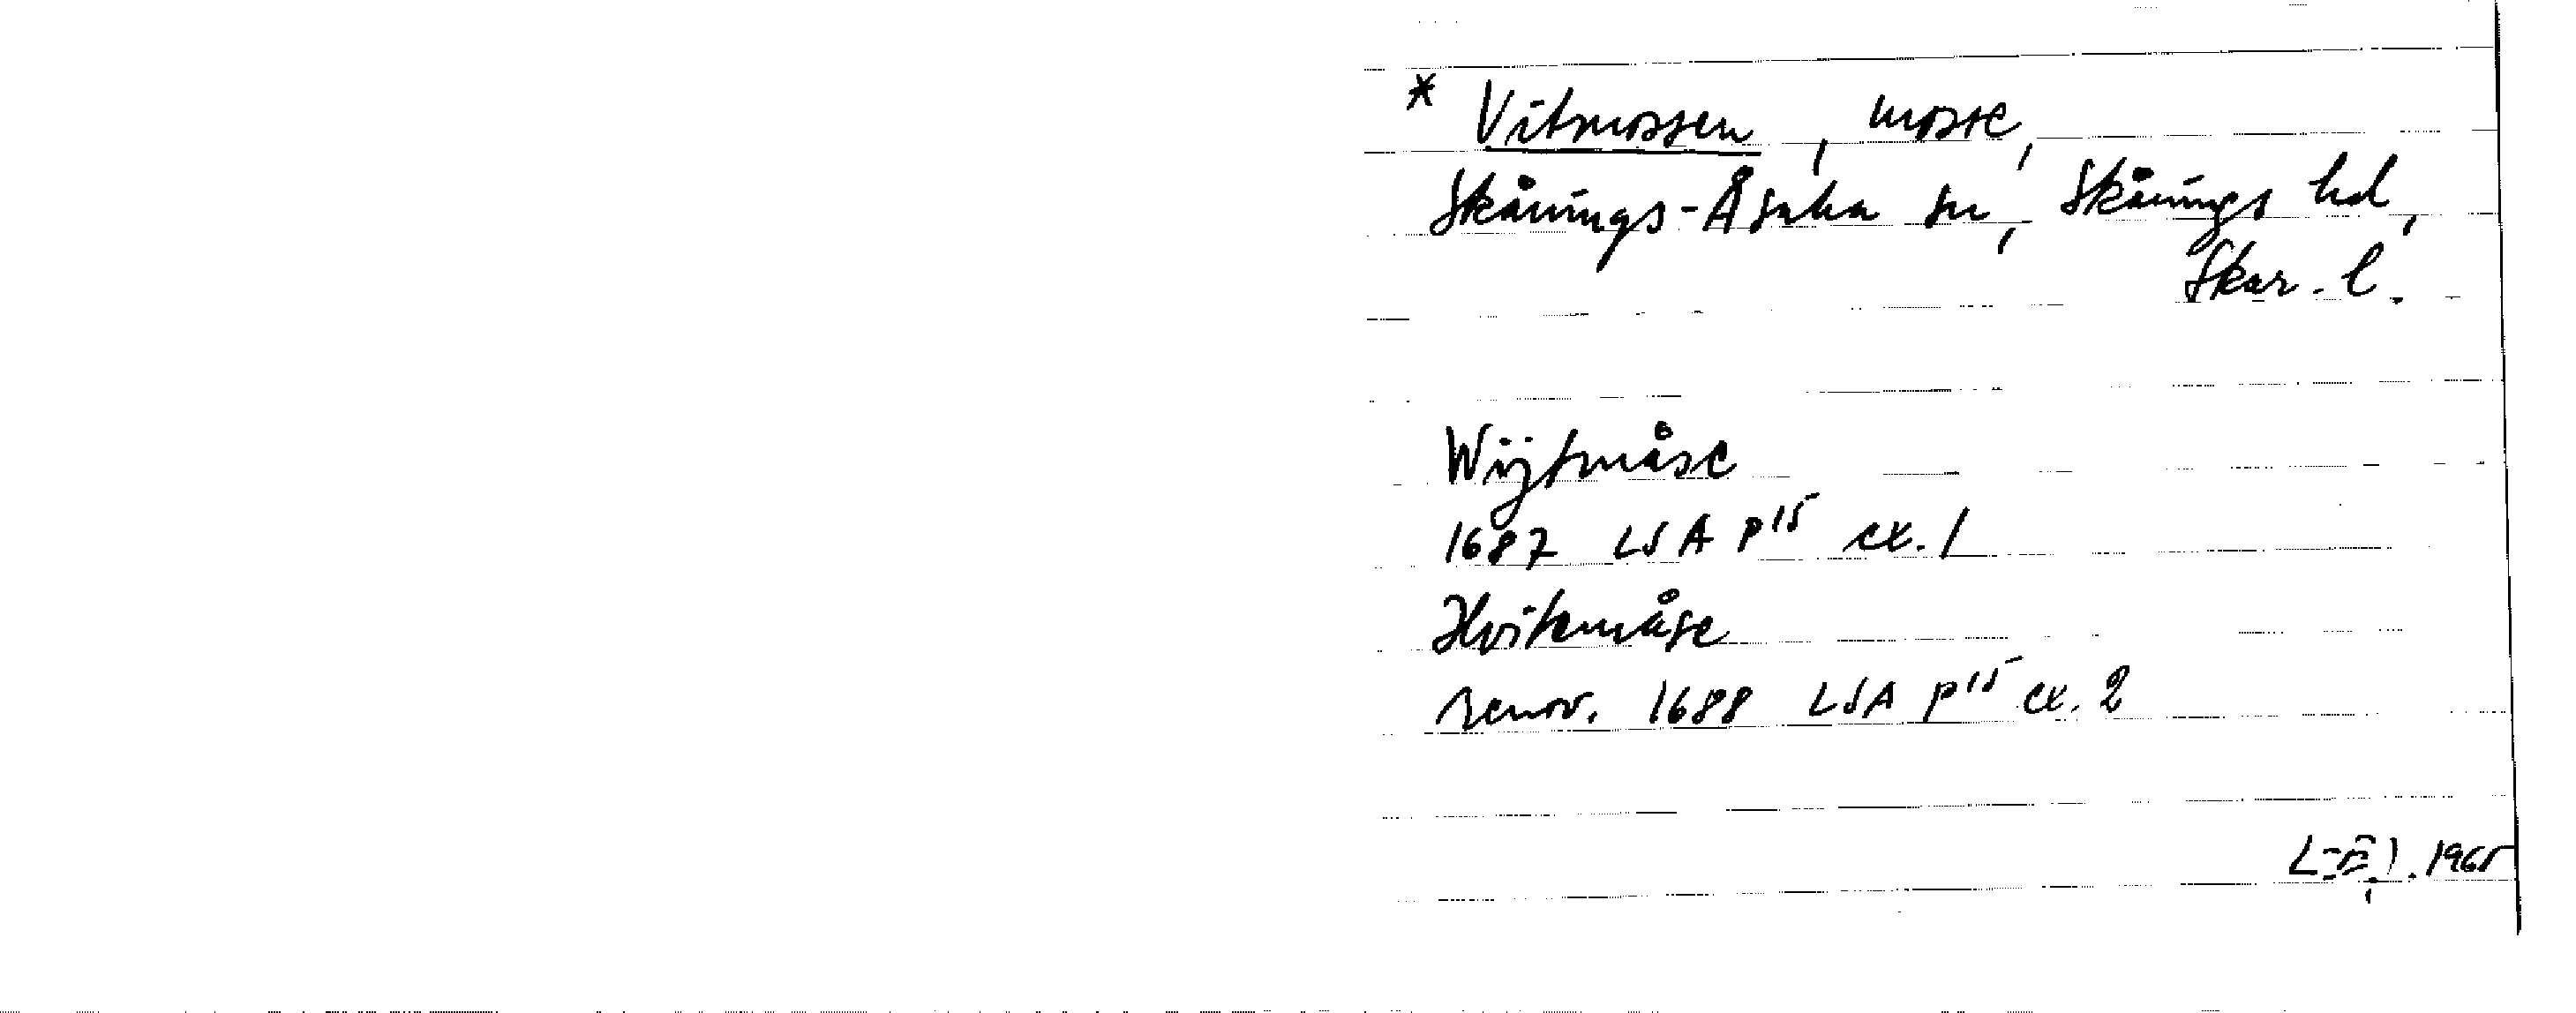 * Vitmossen, mosse,
Skånings-Åsaka sn, Skånings hd,
Skar. l.
Wijtmåse
1687 LSA P15 ex. 1
Hvitemåse
renov. 1688 LSA P15 ex. 2
1965